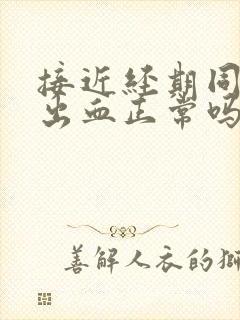 接近经期同
出血正常吗
善解人衣的狮